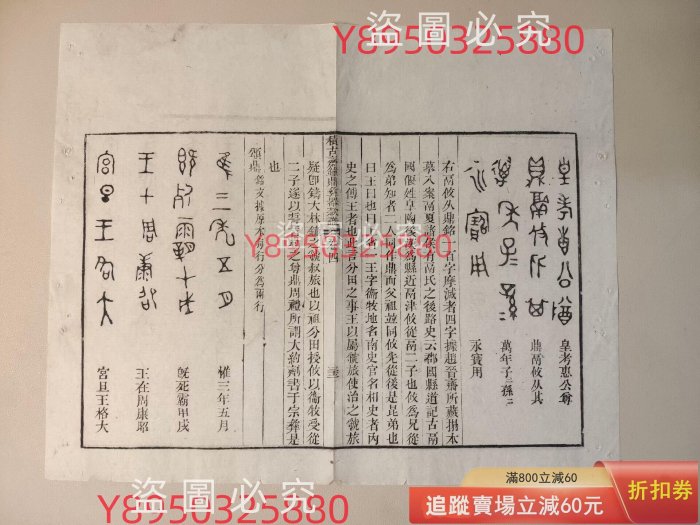 盜圖必究
Y8950325880
皇考惠公尊
鼎鬲攸从其
萬年子二孫二
永寶用
右鬲攸从鼎銘 百字摩滅者四字據趙晉齋所藏搨本
摹入案鬲夏諸侯有鬲氏之後路史云郡國縣道記古鬲
國偃姓皋陶後漢爲縣近鬲津攸從鬲二子也攸爲兄從
爲弟知者二人同作鼎而文祖並同攸先從後是昆弟也
曰王曰也曰 者王字衞牧地名南史官名相史者丙
史之傅王者也此言分田之事王以屬虢旅使治之虢旅
積古齋鐘鼎彝器款識 四
疑卽鑄大林鐘之虢叔旅也以祖分田授攸以衞牧受從
二子遂以 之尊鼎周禮所謂大約劑書于宗彝是
也
頌鼎 銘文據原本每行分爲兩行
惟三年五月
旣死霸甲戌
王在周康昭
宮旦王格大
盜圖必究
Y8950325880
盜圖必究
Y8950325880
滿800立減60
追蹤賣場立減60元
折扣券